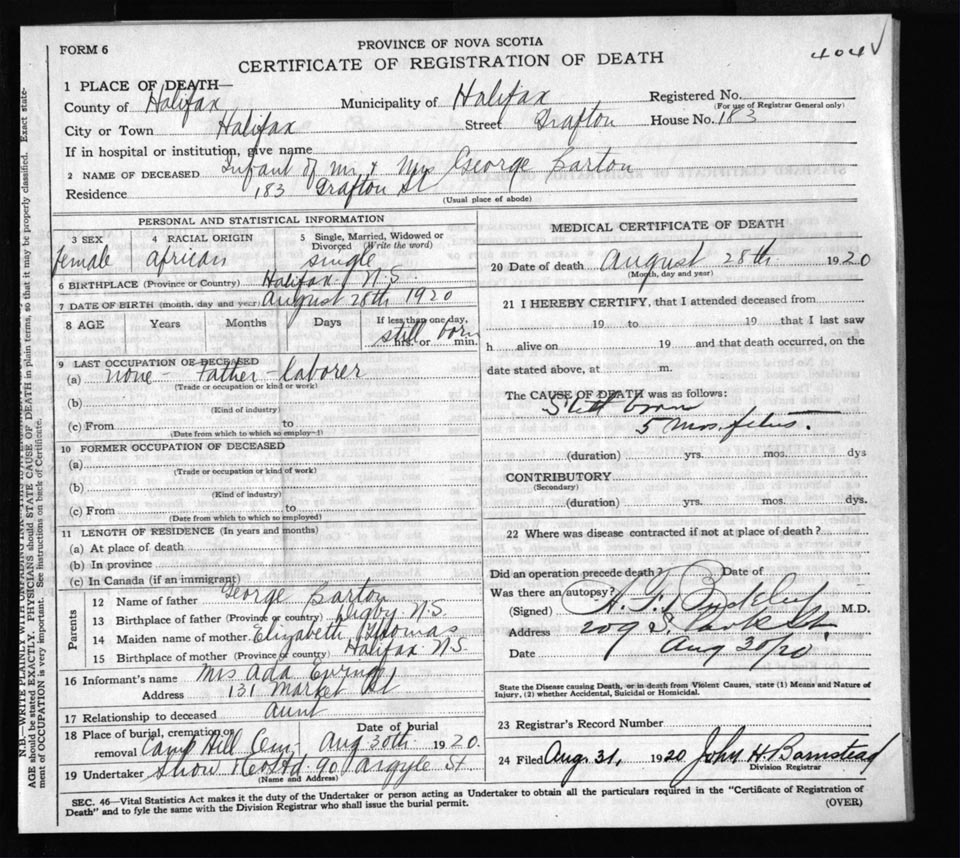 FORM 6
PROVINCE OF NOVA SCOTIA
404 √
CERTIFICATE OF REGISTRATION OF DEATH
1 PLACE OF DEATH—
County of Halifax Municipality of Halifax Registered No.
(For use of Registrar General only)
City or Town Halifax Street Grafton House No. 183
If in hospital or institution, give name
2 NAME OF DECEASED Infant of Mr & Mrs George Barton
Residence 183 Grafton St
(Usual place of abode)
PERSONAL AND STATISTICAL INFORMATION
3 SEX 4 RACIAL ORIGIN 5 Single, Married, Widowed or Divorced (Write the word)
female African single
6 BIRTHPLACE (Province or Country) Halifax N.S.
7 DATE OF BIRTH (month, day and year) August 28th 1920
8 AGE Years Months Days If less than one day, hrs. or min.
still born
9 LAST OCCUPATION OF DECEASED
(a) none - Father - Laborer
(Trade or occupation or kind or work)
(b)
(Kind of industry)
(c) From to
(Date from which to which so employ—)
10 FORMER OCCUPATION OF DECEASED
(a)
(Trade or occupation or kind of work)
(b)
(Kind of industry)
(c) From to
(Date from which to which so employed)
11 LENGTH OF RESIDENCE (In years and months)
(a) At place of death
(b) In province
(c) In Canada (if an immigrant)
Parents
12 Name of father George Barton
13 Birthplace of father (Province or country) Digby N.S.
14 Maiden name of mother Elizabeth Thomas
15 Birthplace of mother (Province or country) Halifax N.S.
16 Informant's name Mrs Ada Ewing
Address 131 Market St
17 Relationship to deceased Aunt
18 Place of burial, cremation or removal Camp Hill Cem. Date of burial Aug 30th 1920.
19 Undertaker Snow & Co Ltd. 90 Argyle St.
(Name and Address)
MEDICAL CERTIFICATE OF DEATH
20 Date of death August 28th 1920
(Month, day and year)
21 I HEREBY CERTIFY, that I attended deceased from
19 to 19 that I last saw
h alive on 19 and that death occurred, on the
date stated above, at m.
The CAUSE OF DEATH was as follows:
Still born
5 mos. fetus.
(duration) yrs. mos. dys
CONTRIBUTORY
(Secondary)
(duration) yrs. mos. dys.
22 Where was disease contracted if not at place of death?
Did an operation precede death? Date of
Was there an autopsy?
(Signed) M.D.
Address 209 S. Park St.
Date Aug 30/20
State the Disease causing Death, or in death from Violent Causes, state (1) Means and Nature of
Injury, (2) whether Accidental, Suicidal or Homicidal.
23 Registrar's Record Number
24 Filed Aug. 31, 1920 John H. Barnstead
Division Registrar
SEC. 46—Vital Statistics Act makes it the duty of the Undertaker or person acting as Undertaker to obtain all the particulars required in the "Certificate of Registration of
Death" and to fyle the same with the Division Registrar who shall issue the burial permit.
(OVER)
N.B.—WRITE PLAINLY WITH UNFADING INK
AGE should be stated EXACTLY. PHYSICIANS should STATE CAUSE OF DEATH in plain terms, so that it may be properly classified. Exact state-
ment of OCCUPATION is very important. See instructions on back of Certificate.